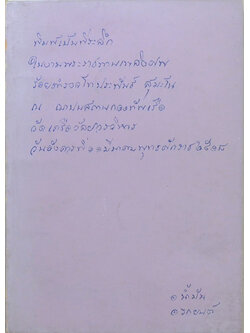 พิมพ์เป็นที่ระลึก
ในงานพระราชทานเพลิงศพ
ร้อยตำรวจโทประพันธ์ สุมะโน
ณ ฌาปนสถานกองทัพเรือ
วัดเครือวัลย์วรวิหาร
วันอังคารที่ ๑๑ มีนาคม พุทธศักราช ๒๕๑๘